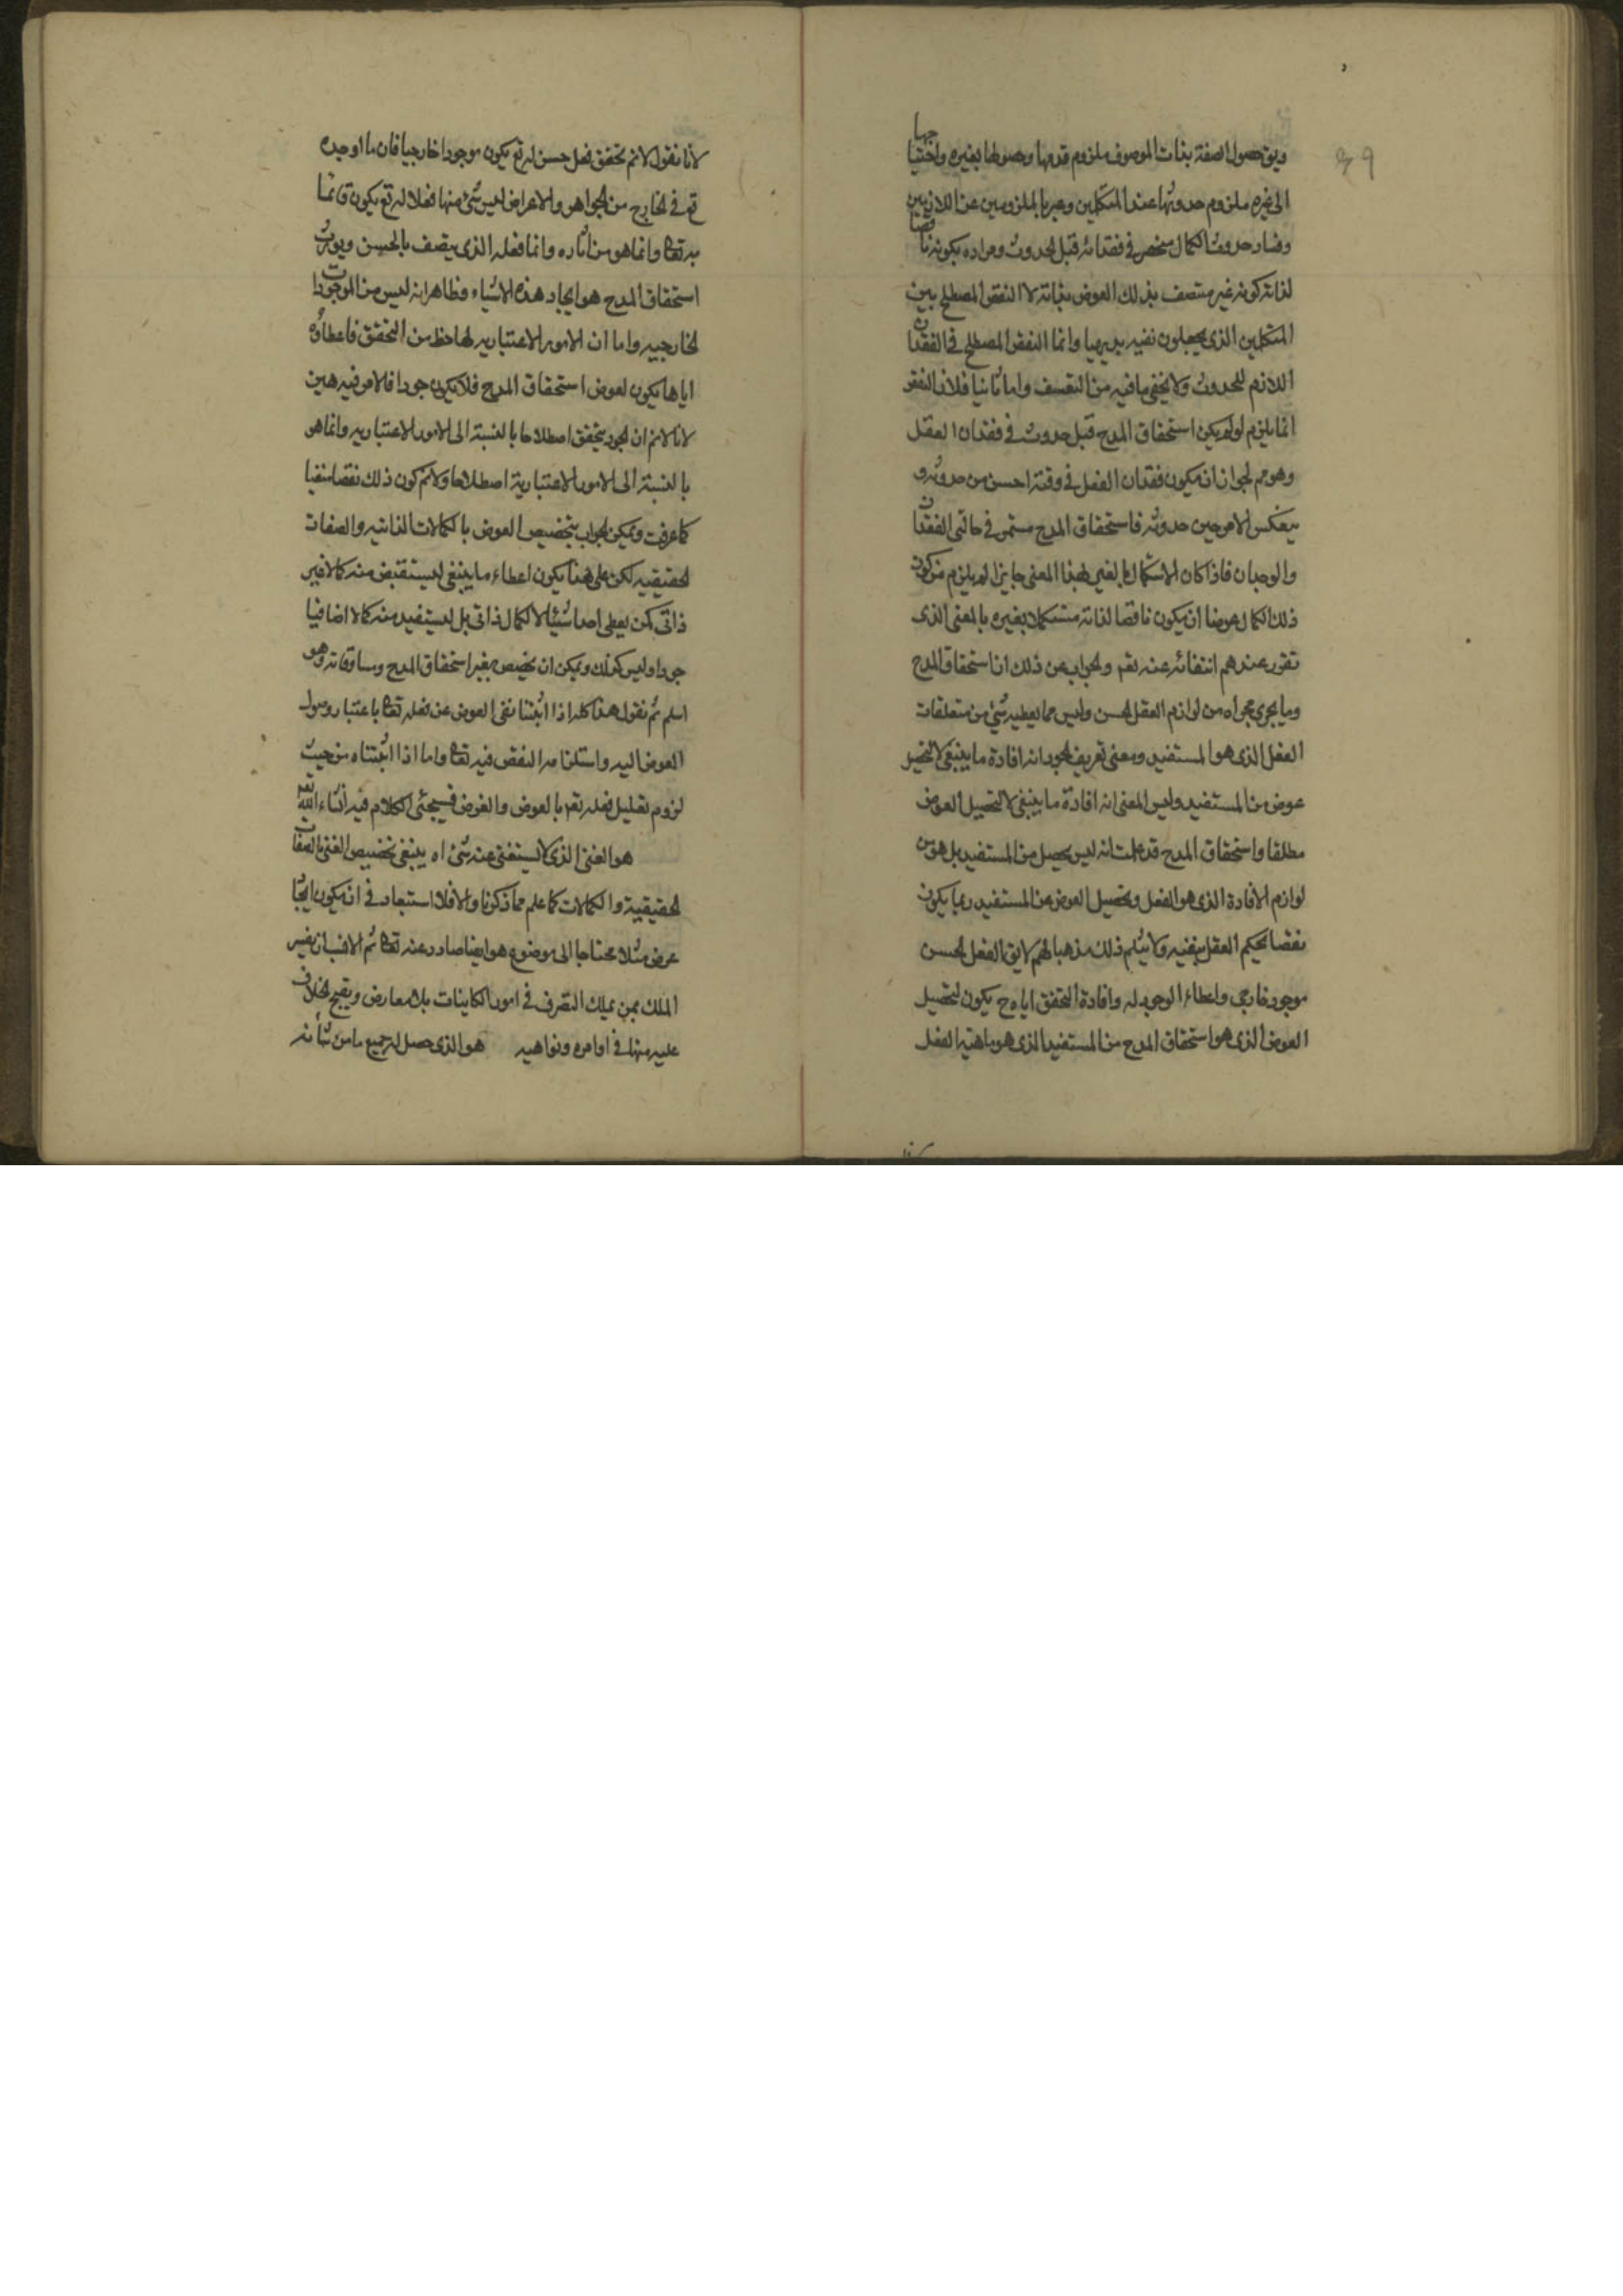 ويق حصول الصفة بذات الموصوف ملزوم قدمها وحصولها بغيره واحتياجها
الى غيره ملزوم حدوثها عند المتكلمين وعبر بالملزومين عن اللازمين
وفساد حدوث الكمال منحصر في فقدانه قبل الحدوث ومراده بكونه ناقصا
لذاته كونه غير متصف بذلك العوض بذاته لا النقص المصطلح بين
المتكلمين الذى يجعلون نفيه بديهيا وانما النقص المصطلح في الفقدان
اللازم للحدوث ولا يخفى ما فيه من التعسف واما ثانيا فلان النقص
انما يلزم لو لم يكن استحقاق المدح قبل حدوث في فقدان العقل
وهو مم لجواز ان يكون فقدان الفعل في وقته احسن من حدوثه و
ينعكس الامر حين حدوثه فاستحقاق المدح مستمر في حالتى الفقدان
والوجدان فاذا كان الاستكمال بالغير لهذا المعنى جايزا لم يلزم من كون
ذلك الكمال عوضا ان يكون ناقصا لذاته مستكملا بغيره بالمعنى الذى
تقرر عندهم انتفائه عنه تعم والجواب عن ذلك ان استحقاق المدح
وما يجرى مجراه من لوازم العقل الحسن وليس مما يعطيه شئ من متعلقات
الفعل الذى هو المستفيد ومعنى تعريف الجود انه افادة ما ينبغى لا لتحصيل
عوض من المستفيد وليس المعنى انه افادة ما ينبغى لا لتحصيل العوض
مطلقا واستحقاق المدح قد علمت انه ليس يحصل من المستفيد بل هو من
لوازم الافادة الذى هو الفعل وتحصيل العوض من المستفيد ربما يكون
نقصا يحكم العقل بنفيه ولا يثلم ذلك مذهبا لهم لا يق الفعل الحسن
موجود خارجى واعطاء الوجود له وافادة التحقق اياه ح يكون لتحصيل
العوض الذى هو استحقاق المدح من المستفيد الذى هو ماهية الفعل
لانا نقول لانم تحقق فعل حسن له تع يكون موجودا خارجيا فان ما اوجده
تع في الخارج من الجواهر والاعراض ليس شئ منها فعلا له تع يكون قائما
به تعا وانما هو من اثاره وانما فعله الذى يتصف بالحسن ويورث
استحقاق المدح هو ايجاد هذه الاشياء وظاهر انه ليس من الموجودات
الخارجيه واما ان الامور الاعتباريه لها حظ من التحقق فاعطاؤه
اياها يكون لعوض استحقاق المدح فلا يكون جودا فالامر فيه هين
لانا لانم ان الجود يتحقق اصطلاحا بالنسبة الى الامور الاعتباريه وانما هو
بالنسبة الى الامور الاعتبارية اصطلاحا ولانم كون ذلك نقصا منفيا
كما عرفت ويمكن الجواب بتخصيص العوض بالكمالات الذاتيه والصفات
الحقيقيه لكن على هذا يكون اعطاء ما ينبغى ليستقبض منه كمالا غير
ذاتى كمن يعطى احدا شيئا لا لكمال ذاتى بل ليستفيد منه كمالا اضافيا
جودا وليس كذلك ويمكن ان يخصص بغير استحقاق المدح ومساوقاته وهو
اسلم ثم نقول هذا كله اذا اثبتنا نفى العوض عن فعله تعا باعتبار وصول
العوض اليه واستلزامه النقص فيه تعا واما اذا اثبتناه من حيث
لزوم تعليل فعله تعم بالعوض والغرض فسيجئ الكلام فيه انشاء الله تعم
هو الغنى الذى لا يستغنى عنه شئ اه ينبغى تخصيص الغنى بالصفات
الحقيقية والكمالات كما علم مما ذكرنا والافلا استبعاد في ان يكون ايجاد
عرض مثلا محتاجا الى موضوع هو ايضا صادر عنه تعا ثم الانسب ان يفسر
الملك بمن يملك التصرف في امور الكاينات بلا معارض ويقبح الخلاف
عليه منها في اوامره ونواهيه هو الذى حصل له جميع ما من شأنه